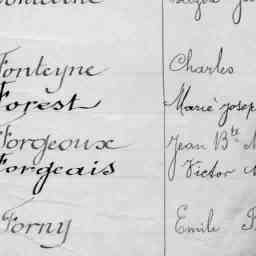 Fonteyne Charles
Forest Marie Josep
Forgeoux Jean Bte
Forgeais Victor
Forny Emile